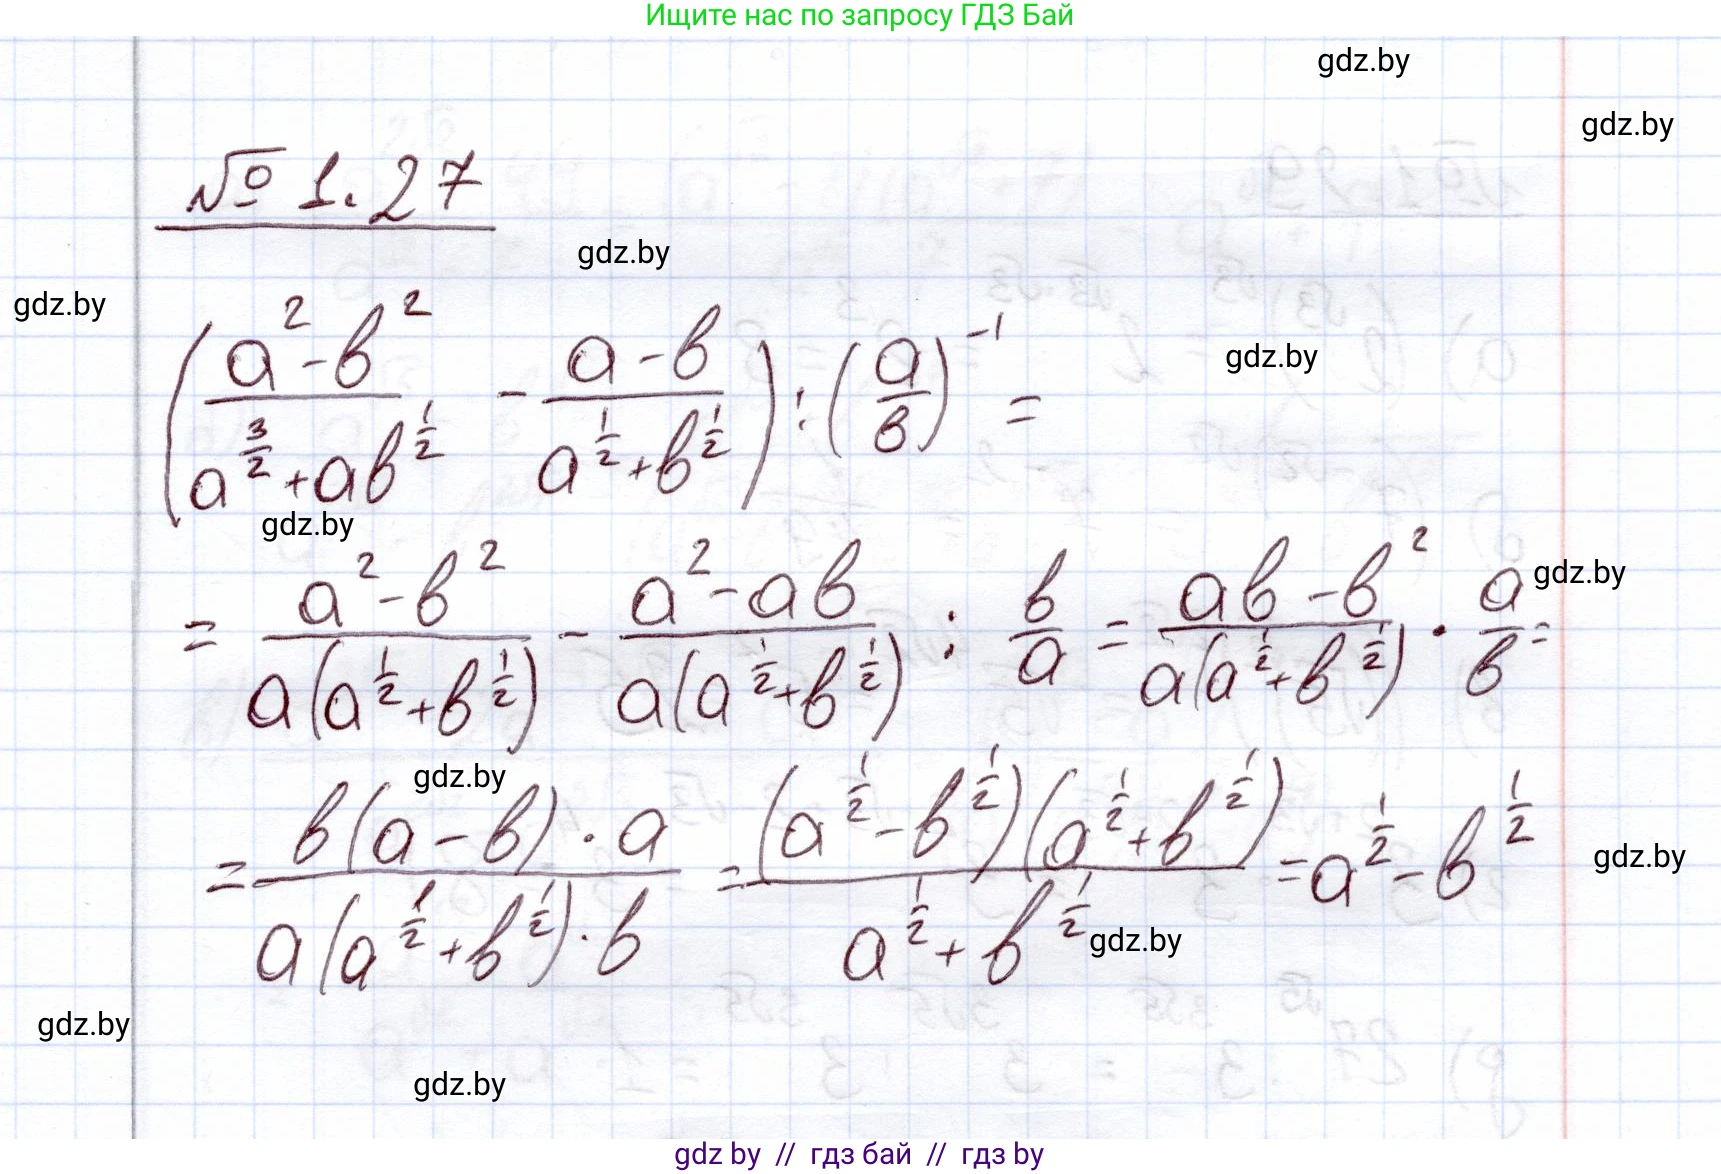 Ищите нас по запросу ГДЗ Бай
gdz.by
gdz.by
№ 1.27
gdz.by
gdz.by
(a² - b² / a^(3/2) + ab^(1/2) - a - b / a^(1/2) + b^(1/2)) : (a/b)^(-1) =
gdz.by
gdz.by
= a² - b² / a(a^(1/2) + b^(1/2)) - a² - ab / a(a^(1/2) + b^(1/2)) : b/a = ab - b² / a(a^(1/2) + b^(1/2)) · a/b =
gdz.by
gdz.by
= b(a - b) · a / a(a^(1/2) + b^(1/2)) · b = (a^(1/2) - b^(1/2))(a^(1/2) + b^(1/2)) / a^(1/2) + b^(1/2) = a^(1/2) - b^(1/2)
gdz.by
gdz.by
gdz.by
gdz.by
gdz by // гдз бай // гдз by